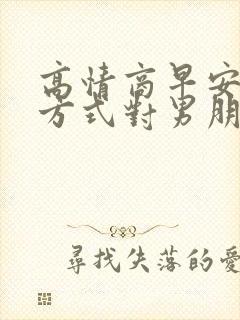 高情商早安
方式對男朋
尋找失落的愛